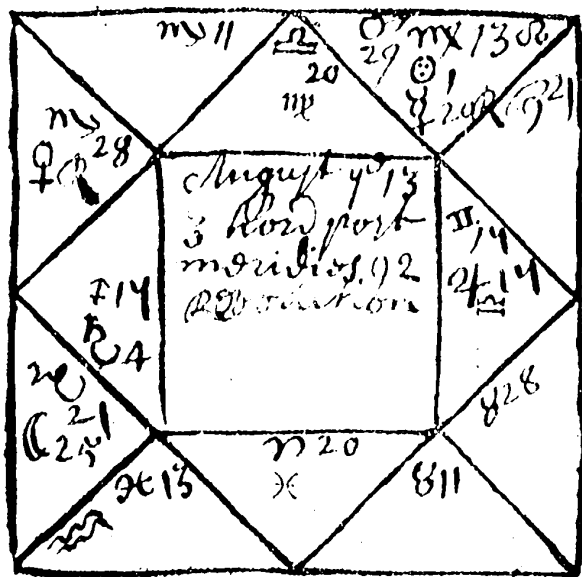 ♏ 11
♎
20
♍
♂
29
♍ 13 ♌
☉ 1
☿ 20 ℞
21
♏ 28
♀ ℞
August ye 13
3 post
meridies 92
Revolution
♊
14
♃ 14
♐ 14
♄ 4
♑
21
☽ 25
♉ 28
♓ 13
♒
♈ 20
♓
♉ 11